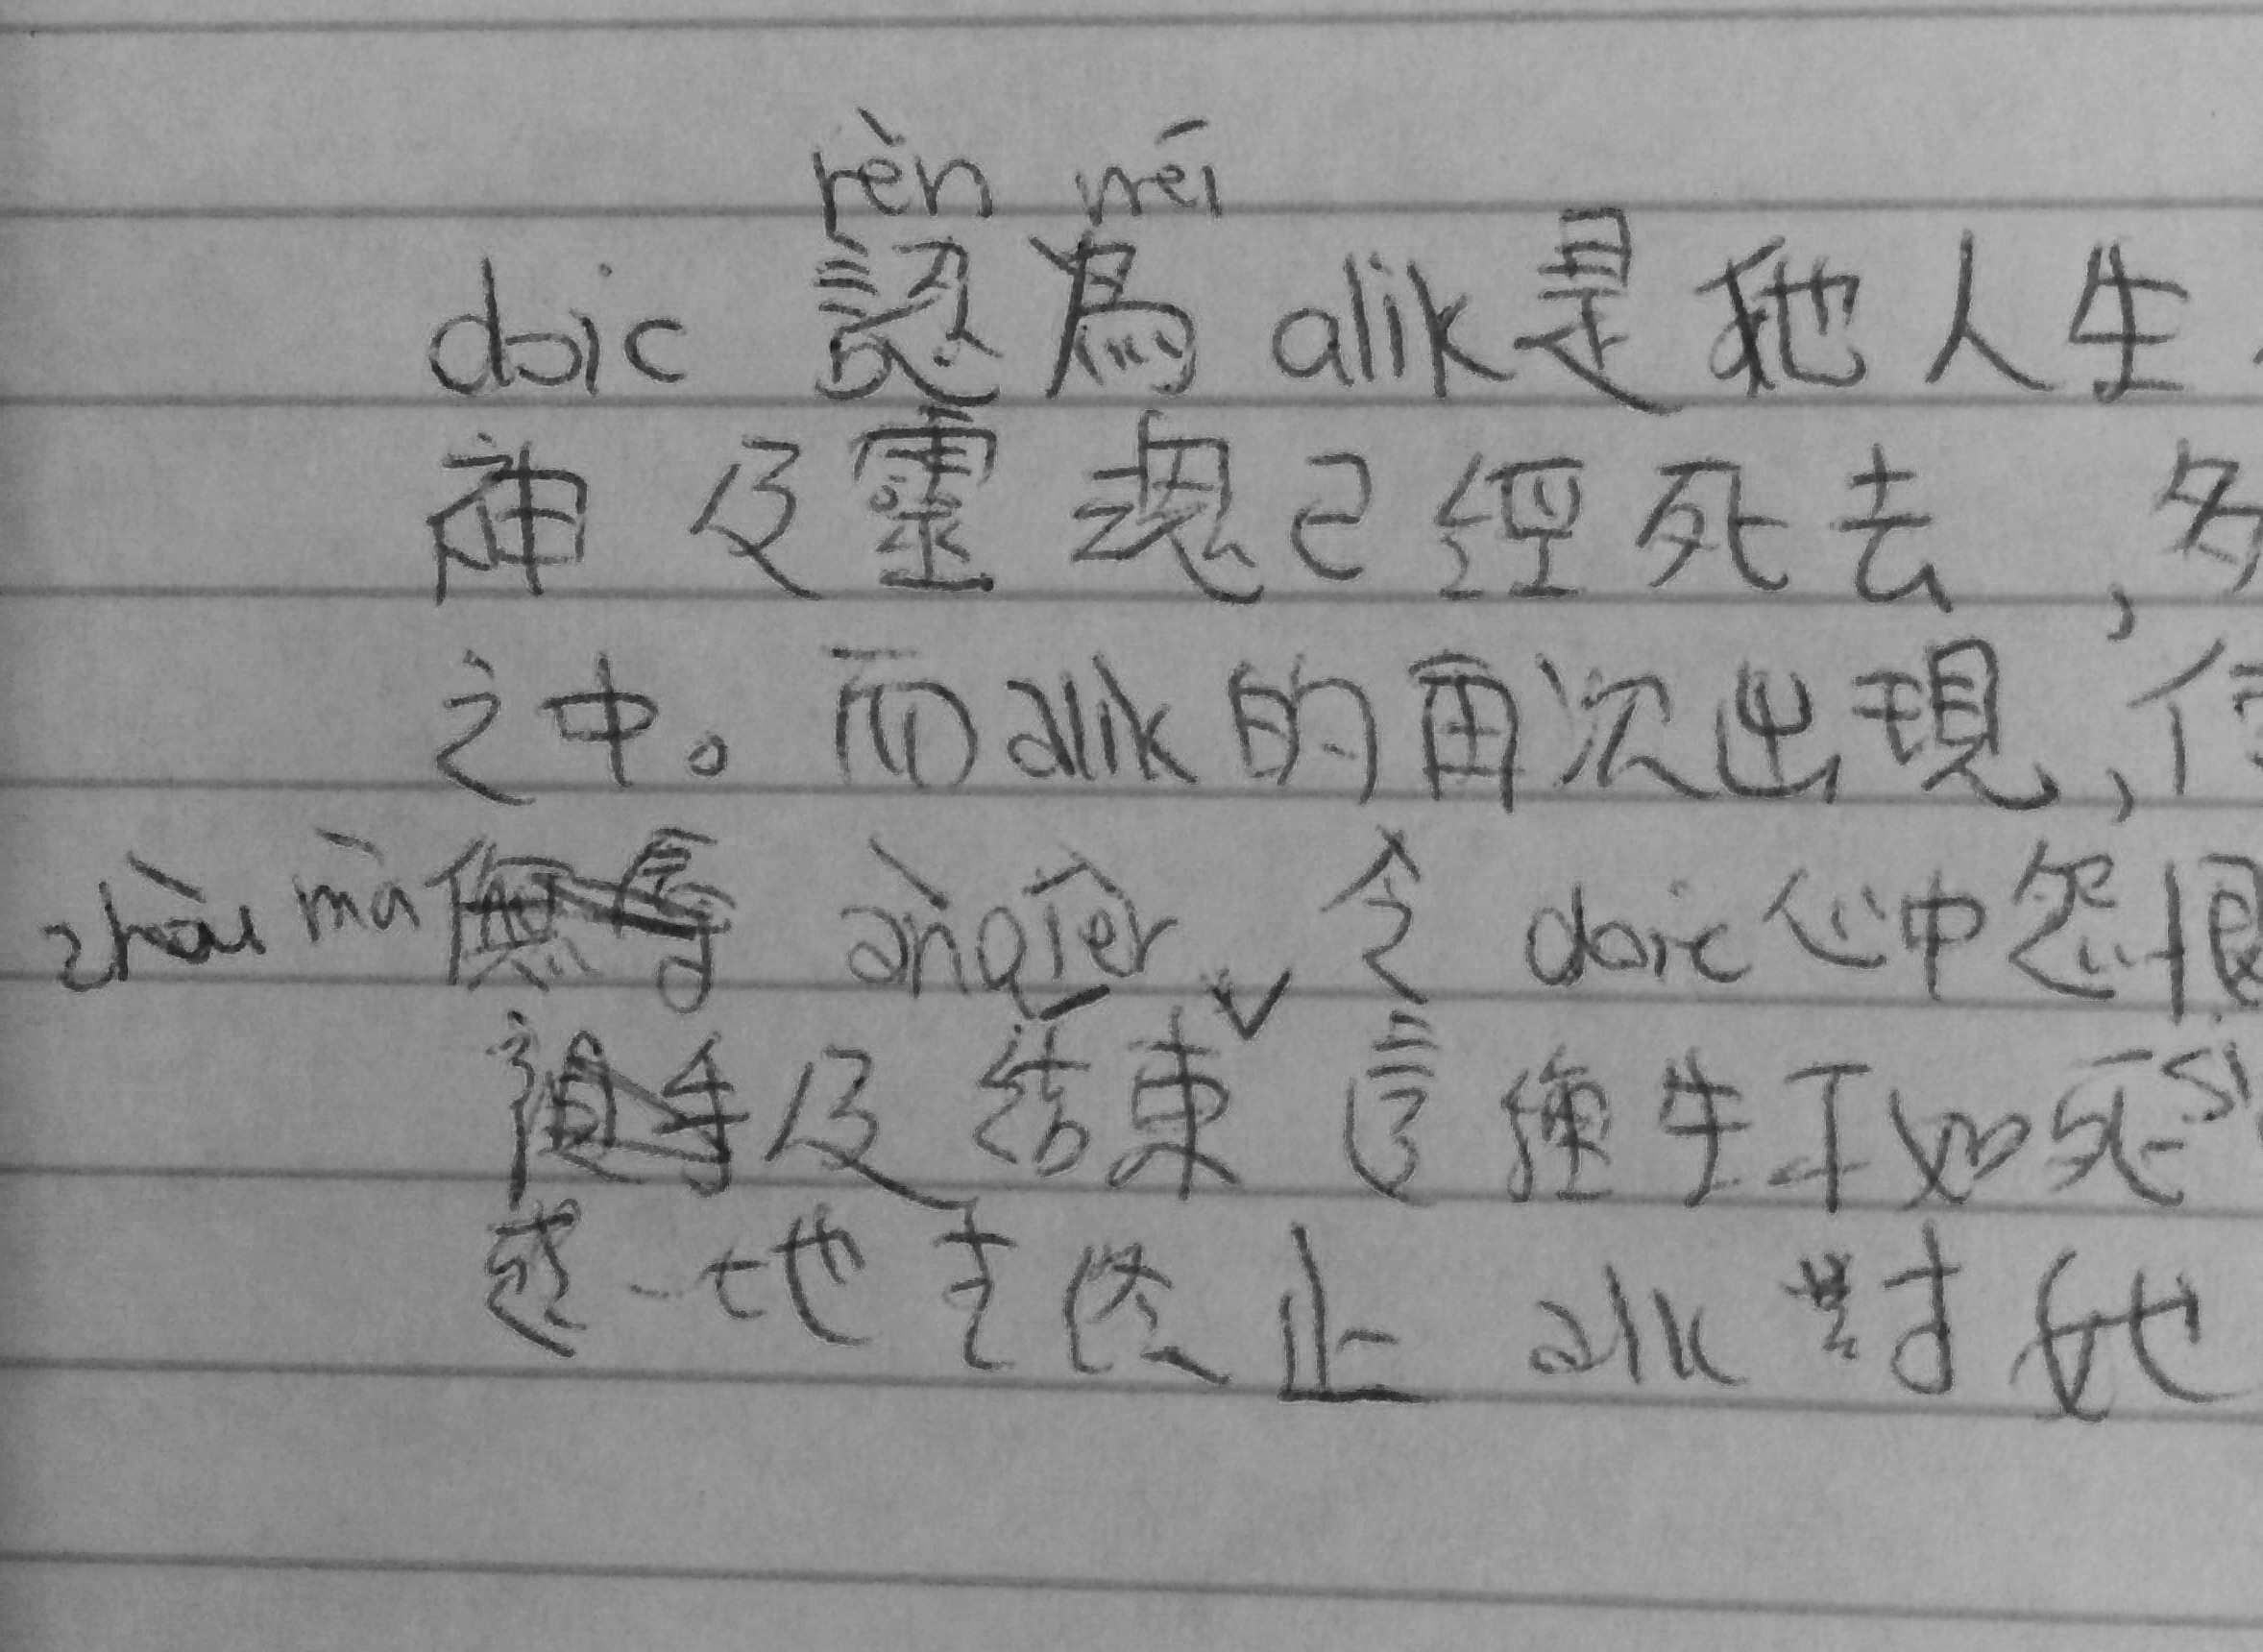 rèn wéi
doic 認為 alik是她人生
神及靈魂已經死去，多
之中。而alik的再次出現，
zhòu mà àn qiěr 令 doic 心中怨恨
及結束這種生不如死 sǐ
惑 地去終止 alik 對她